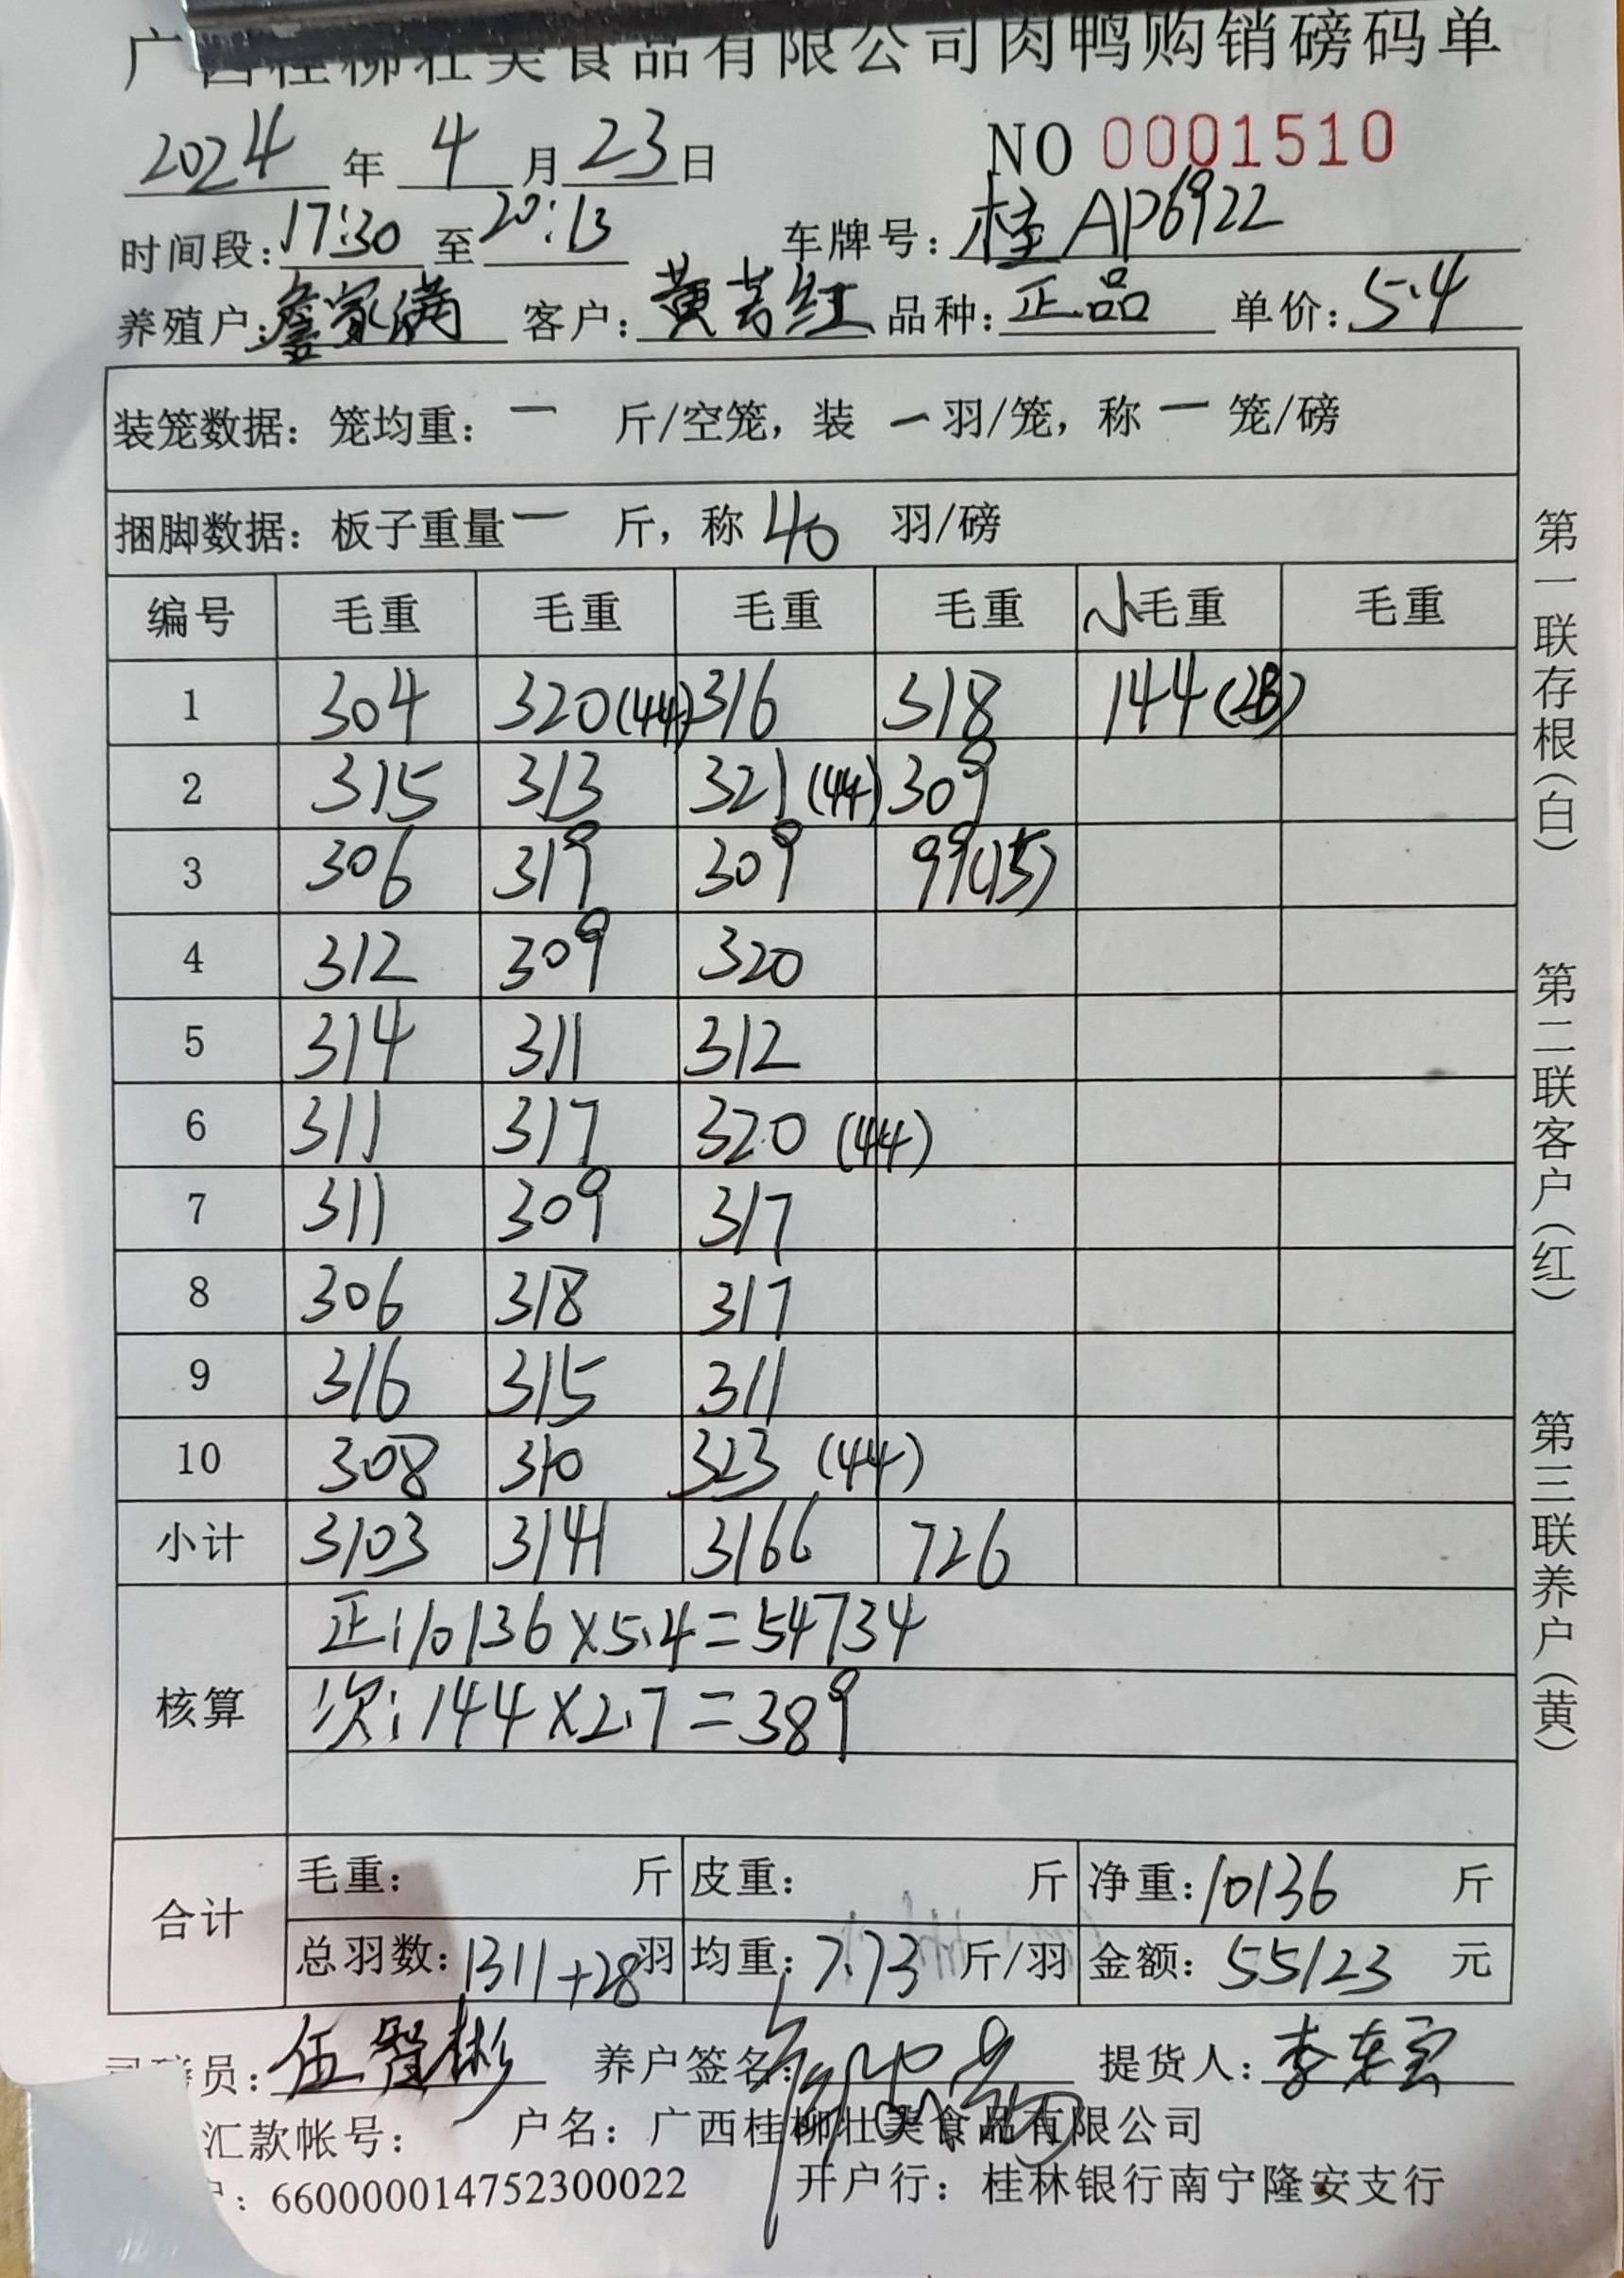 广西桂柳壮美食品有限公司肉鸭购销磅码单
2024 年 4 月 23 日 NO 0001510
时间段: 17:30 至 20:13 车牌号: 桂AP6922
养殖户: 詹家满 客户: 黄芳红 品种: 正品 单价: 5.4
装笼数据: 笼均重: 一 斤/空笼, 装 一 羽/笼, 称 一 笼/磅
捆脚数据: 板子重量 一 斤, 称 40 羽/磅
编号 毛重 毛重 毛重 毛重 小毛重 毛重
1 304 320(44) 316 318 144(28)
2 315 313 321(44) 309
3 306 319 309 99(15)
4 312 309 320
5 314 311 312
6 311 317 320 (44)
7 311 309 317
8 306 318 317
9 316 315 311
10 308 310 323 (44)
小计 3103 3141 3166 726
核算
正: 10136×5.4=54734
次: 144×2.7=389
合计
毛重: 斤 皮重: 斤 净重: 10136 斤
总羽数: 1311+28 羽 均重: 7.73 斤/羽 金额: 55123 元
员: 伍 彬 养户签名: 提货人: 李
汇款帐号: 户名: 广西桂柳壮美食品有限公司
: 660000014752300022 开户行: 桂林银行南宁隆安支行
第一联存根(白) 第二联客户(红) 第三联养户(黄)